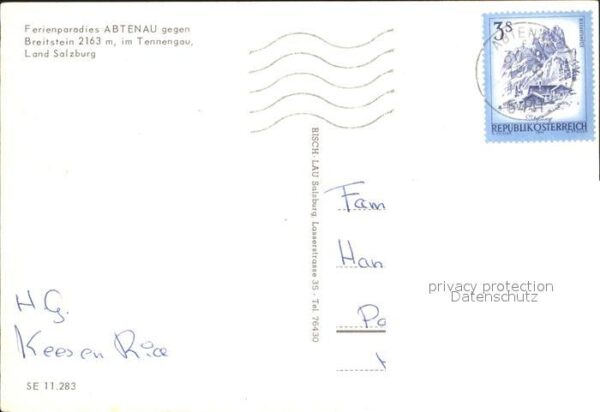 Ferienparadies ABTENAU gegen
Breitstein 2163 m, im Tennengau,
Land Salzburg
3 S
REPUBLIK ÖSTERREICH
ABTENAU
RISCH-LAU Salzburg, Lasserstrasse 35 · Tel. 76430
Fam
Han
privacy protection
Datenschutz
H.G.
Kees en Ria
SE 11.283